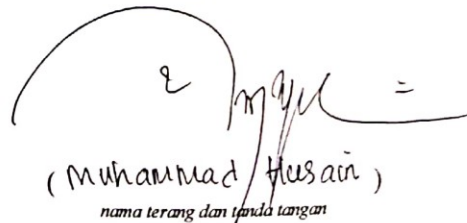 (Muhammad Husain)
nama terang dan tanda tangan